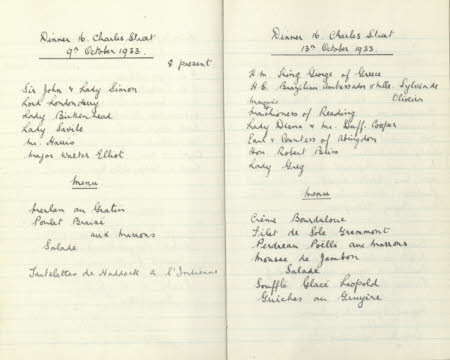 Dinner 16. Charles Street
9th October 1933.
8 present
Sir John & Lady Simon
Lord Londonderry
Lady Birkenhead
Lady Savile
Mr. Harris
Major Walter Elliot
Menu
Merlan au Gratin
Poulet Braisé
aux marrons
Salade
Tartelettes de Haddock à l'Indienne
Dinner 16. Charles Street
13th October 1933.
H.M. King George of Greece
H.E. Brazilian Ambassador & Mlle. Sylvia de
Oliveira
Marquis
Marchioness of Reading
Lady Diana & Mr. Duff Cooper
Earl & Countess of Abingdon
Hon Robert
Lady Greg
Menu
Crème Bourdaloue
Filet de Sole Grammont
Perdreau Poëllé aux Marrons
Mousse de Jambon
Salade
Soufflé Glacé Leopold
Quiches au Gruyère